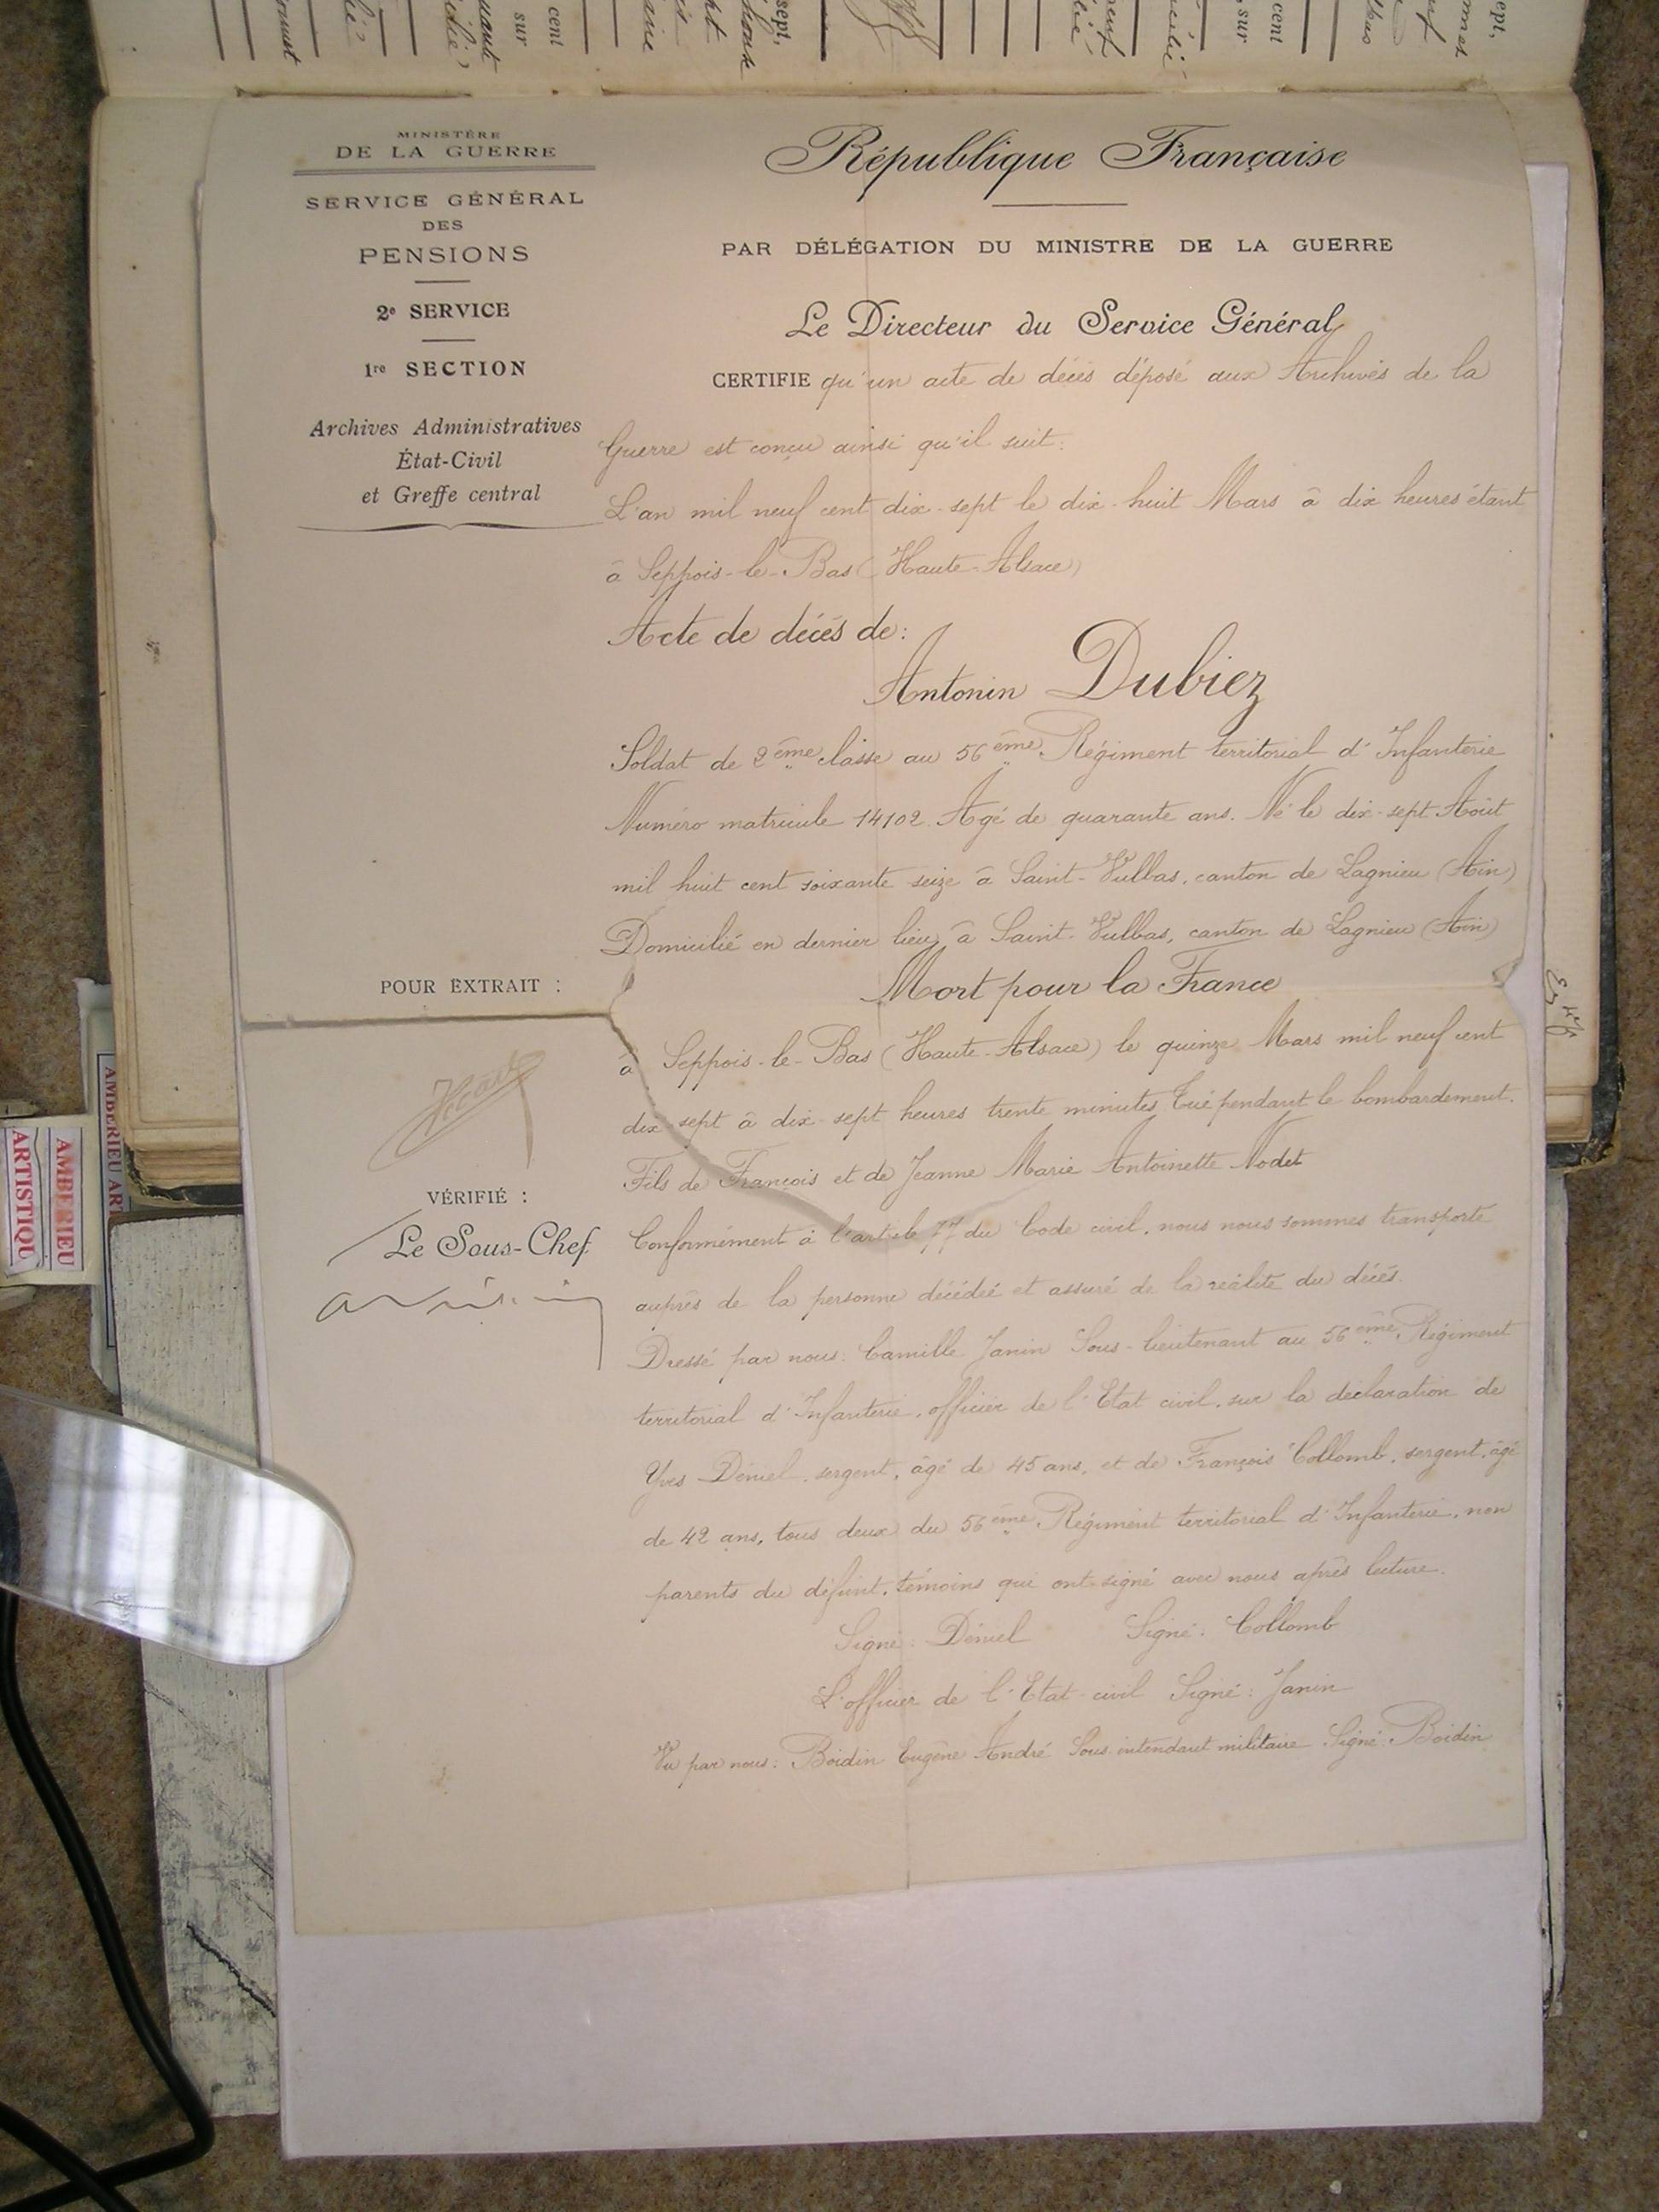 MINISTÈRE
DE LA GUERRE
SERVICE GÉNÉRAL
DES
PENSIONS
2e SERVICE
1re SECTION
Archives Administratives
État-Civil
et Greffe central
République Française
PAR DÉLÉGATION DU MINISTRE DE LA GUERRE
Le Directeur du Service Général
CERTIFIE qu'un acte de décès déposé aux Archives de la
Guerre est conçu ainsi qu'il suit:
L'an mil neuf cent dix-sept le dix-huit Mars à dix heures étant
à Seppois-le-Bas (Haute-Alsace)
Acte de décès de:
Antonin Dubiez
Soldat de 2ème classe au 56ème Régiment territorial d'Infanterie
Numéro matricule 14102. Agé de quarante ans. Né le dix-sept Août
mil huit cent soixante seize à Saint-Vulbas, canton de Lagnieu (Ain)
Domicilié en dernier lieu à Saint-Vulbas, canton de Lagnieu (Ain)
Mort pour la France
à Seppois-le-Bas (Haute-Alsace) le quinze Mars mil neuf cent
dix-sept à dix-sept heures trente minutes, Tué pendant le bombardement.
Fils de François et de Jeanne Marie Antoinette Nodet
Conformément à l'article 77 du Code civil, nous nous sommes transporté
auprès de la personne décédée et assuré de la réalité du décès.
Dressé par nous: Camille Janin Sous-lieutenant au 56ème Régiment
territorial d'Infanterie, officier de l'Etat civil, sur la déclaration de
Yves Déniel, sergent, âgé de 45 ans, et de François Collomb, sergent, âgé
de 42 ans, tous deux du 56ème Régiment territorial d'Infanterie, non
parents du défunt, témoins qui ont signé avec nous après lecture.
Signé: Déniel Signé: Collomb
L'officier de l'Etat-civil Signé: Janin
Vu par nous: Boidin Eugène André Sous-intendant militaire Signé: Boidin
POUR EXTRAIT :
VÉRIFIÉ :
Le Sous-Chef
AMBERIEU
ARTISTIQU
AMBERIEU AR